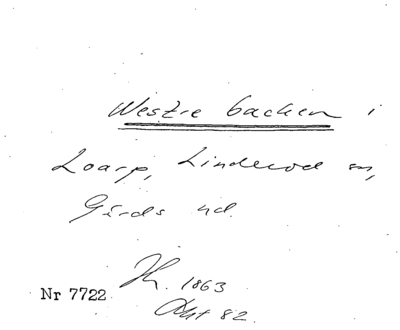 Westre backen i
Loarp, Linderöd sn,
Gärds hd.
1863
Nr 7722
Akt 82.